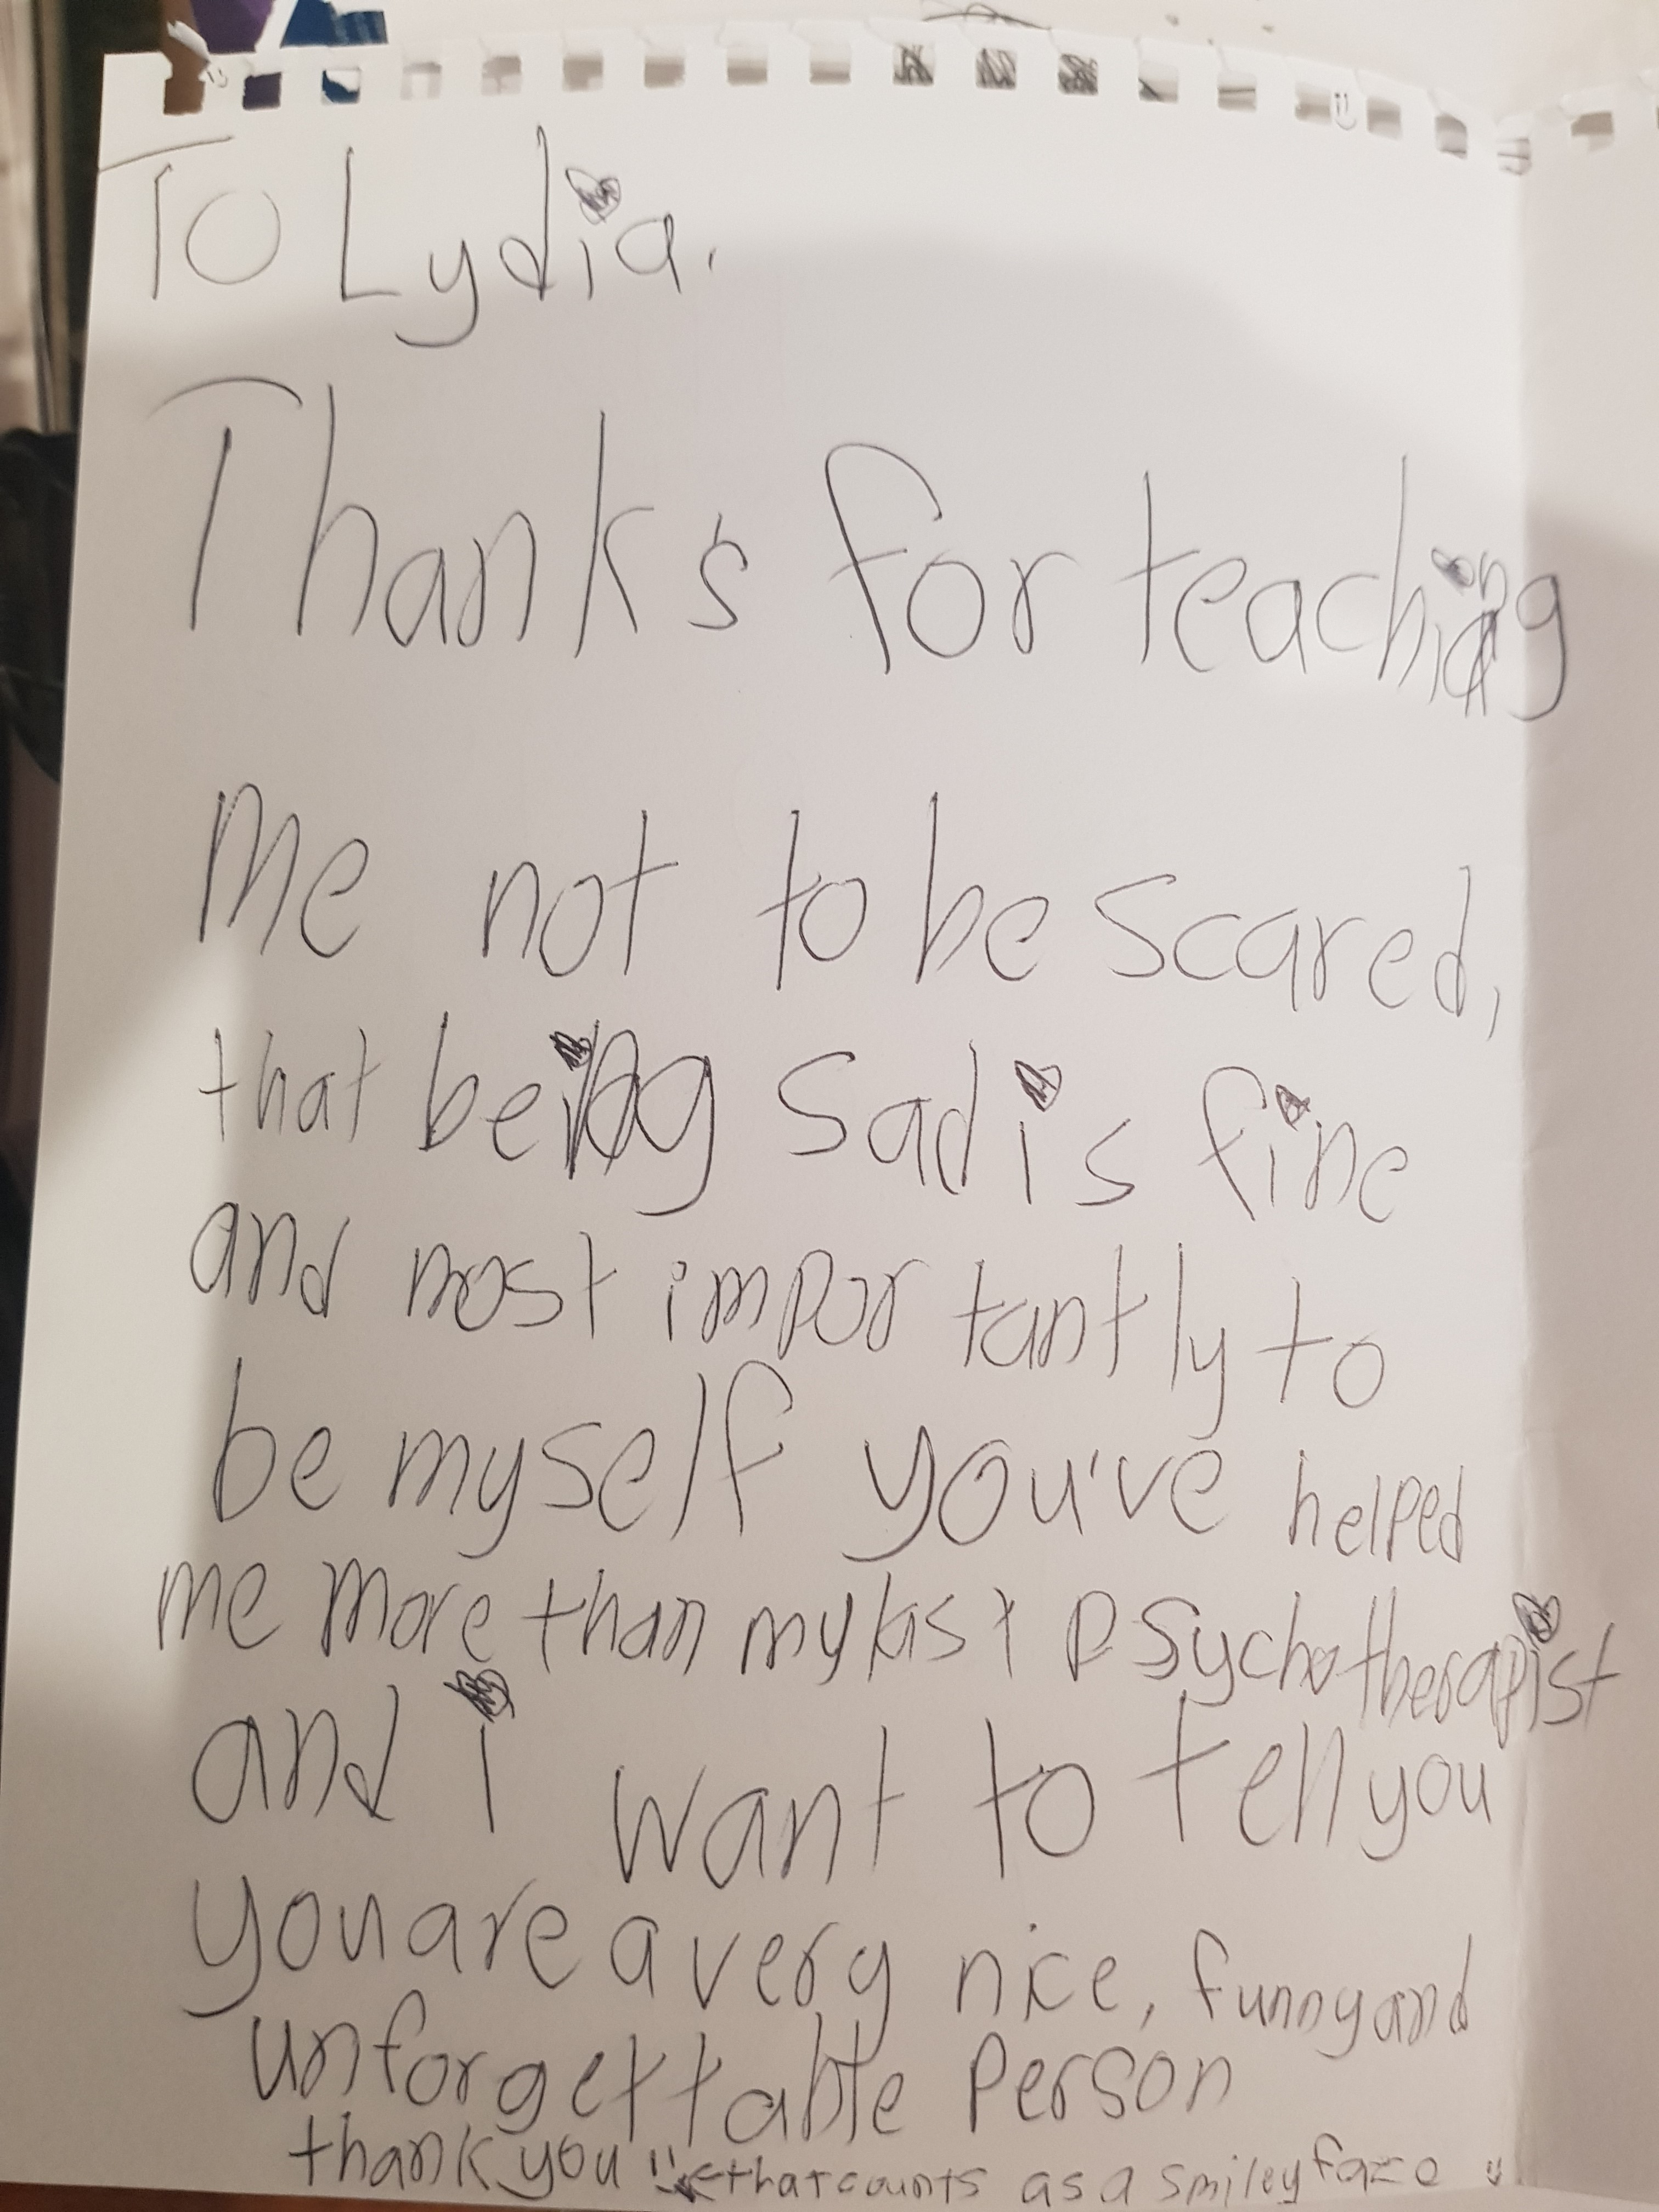 To Lydia.
Thanks for teaching
me not to be scared,
that being sad is fine
and most importantly to
be myself you've helped
me more than my last psychotherapist
and i want to tell you
you are a very nice, funny and
unforgettable person
thank you :) ← that counts as a smiley face :)